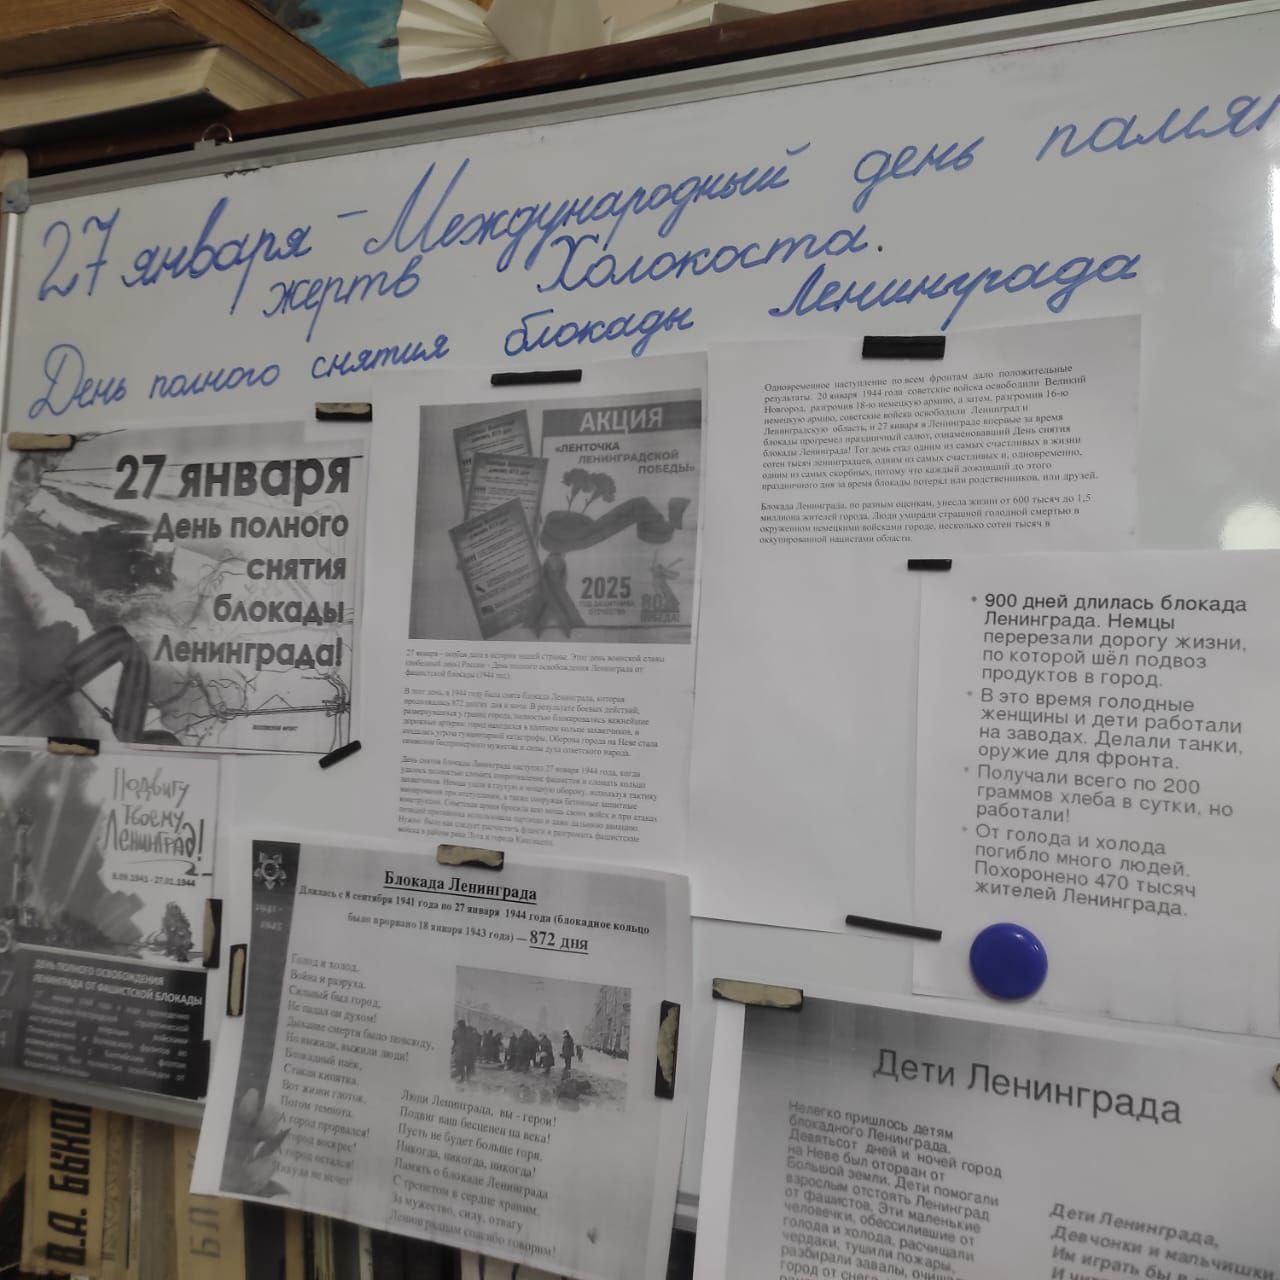 27 января – Международный день
жертв Холокоста.
День полного снятия блокады Ленинграда
27 января
День полного
снятия
блокады
Ленинграда!
АКЦИЯ
«ЛЕНТОЧКА
ЛЕНИНГРАДСКОЙ
ПОБЕДЫ»
2025
ГОД ЗАЩИТНИКА
ОТЕЧЕСТВА
80
ПОБЕДА!
27 января – особая дата в истории нашей страны. Этот день воинской славы
России - День полного освобождения Ленинграда от
фашистской блокады (1944 год).
В этот день, в 1944 году была снята блокада Ленинграда, которая
продолжалась 872 долгих дня и ночи. В результате боевых действий,
развернувшихся у границ города, полностью блокировались важнейшие
дорожные артерии: город находился в плотном кольце захватчиков, и
создалась угроза гуманитарной катастрофы. Оборона города на Неве стала
символом беспримерного мужества и силы духа советского народа.
День снятия блокады Ленинграда наступил 27 января 1944 года, когда
удалось полностью сломить сопротивление фашистов и сломать кольцо
захватчиков. Немцы ушли в глухую и мощную оборону, используя тактику
минирования при отступлении, а также сооружая бетонные защитные
конструкции. Советская армия бросила всю мощь своих войск и при атаках
позиций противника использовала партизан и даже дальнюю авиацию.
Нужно было как следует расчистить фланги и разгромить фашистские
войска в районе реки Луга и города Кингисепп.
Одновременное наступление по всем фронтам дало положительные
результаты. 20 января 1944 года советские войска освободили Великий
Новгород, разгромив 18-ю немецкую армию, а затем, разгромив 16-ю
немецкую армию, советские войска освободили Ленинград и
Ленинградскую область, и 27 января в Ленинграде впервые за время
блокады прогремел праздничный салют, ознаменовавший День снятия
блокады Ленинграда! Тот день стал одним из самых счастливых в жизни
сотен тысяч ленинградцев, одним из самых счастливых и, одновременно,
одним из самых скорбных, потому что каждый доживший до этого
праздничного дня за время блокады потерял или родственников, или друзей.
Блокада Ленинграда, по разным оценкам, унесла жизни от 600 тысяч до 1,5
миллиона жителей города. Люди умирали страшной голодной смертью в
окруженном немецкими войсками городе, несколько сотен тысяч в
оккупированной нацистами области.
• 900 дней длилась блокада
Ленинграда. Немцы
перерезали дорогу жизни,
по которой шёл подвоз
продуктов в город.
• В это время голодные
женщины и дети работали
на заводах. Делали танки,
оружие для фронта.
• Получали всего по 200
граммов хлеба в сутки, но
работали!
• От голода и холода
погибло много людей.
Похоронено 470 тысяч
жителей Ленинграда.
Подвигу
твоему,
Ленинград!
8.09.1941 - 27.01.1944
ДЕНЬ ПОЛНОГО ОСВОБОЖДЕНИЯ
ЛЕНИНГРАДА ОТ ФАШИСТСКОЙ БЛОКАДЫ
1941-
1945
Блокада Ленинграда
Длилась с 8 сентября 1941 года по 27 января 1944 года (блокадное кольцо
было прорвано 18 января 1943 года) — 872 дня
Голод и холод,
Война и разруха.
Сильный был город,
Не падал он духом!
Дыхание смерти было повсюду,
Но выжили, выжили люди!
Блокадный паёк,
Стакан кипятка.
Вот жизни глоток,
Потом темнота.
А город прорвался!
город воскрес!
А город остался!
Никуда не исчез!
Люди Ленинграда, вы - герои!
Подвиг ваш бесценен на века!
Пусть не будет больше горя,
Никогда, никогда, никогда!
Память о блокаде Ленинграда
С трепетом в сердце храним.
За мужество, силу, отвагу
Ленинградцам спасибо говорим!
Дети Ленинграда
Нелегко пришлось детям
блокадного Ленинграда.
Девятьсот дней и ночей город
на Неве был оторван от
Большой земли. Дети помогали
взрослым отстоять Ленинград
от фашистов. Эти маленькие
человечки, обессилившие от
голода и холода, расчищали
чердаки, тушили пожары,
разбирали завалы,
город от
Дети Ленинграда,
Девчонки и мальчишки
Им играть бы
В.А. БЫКОВ